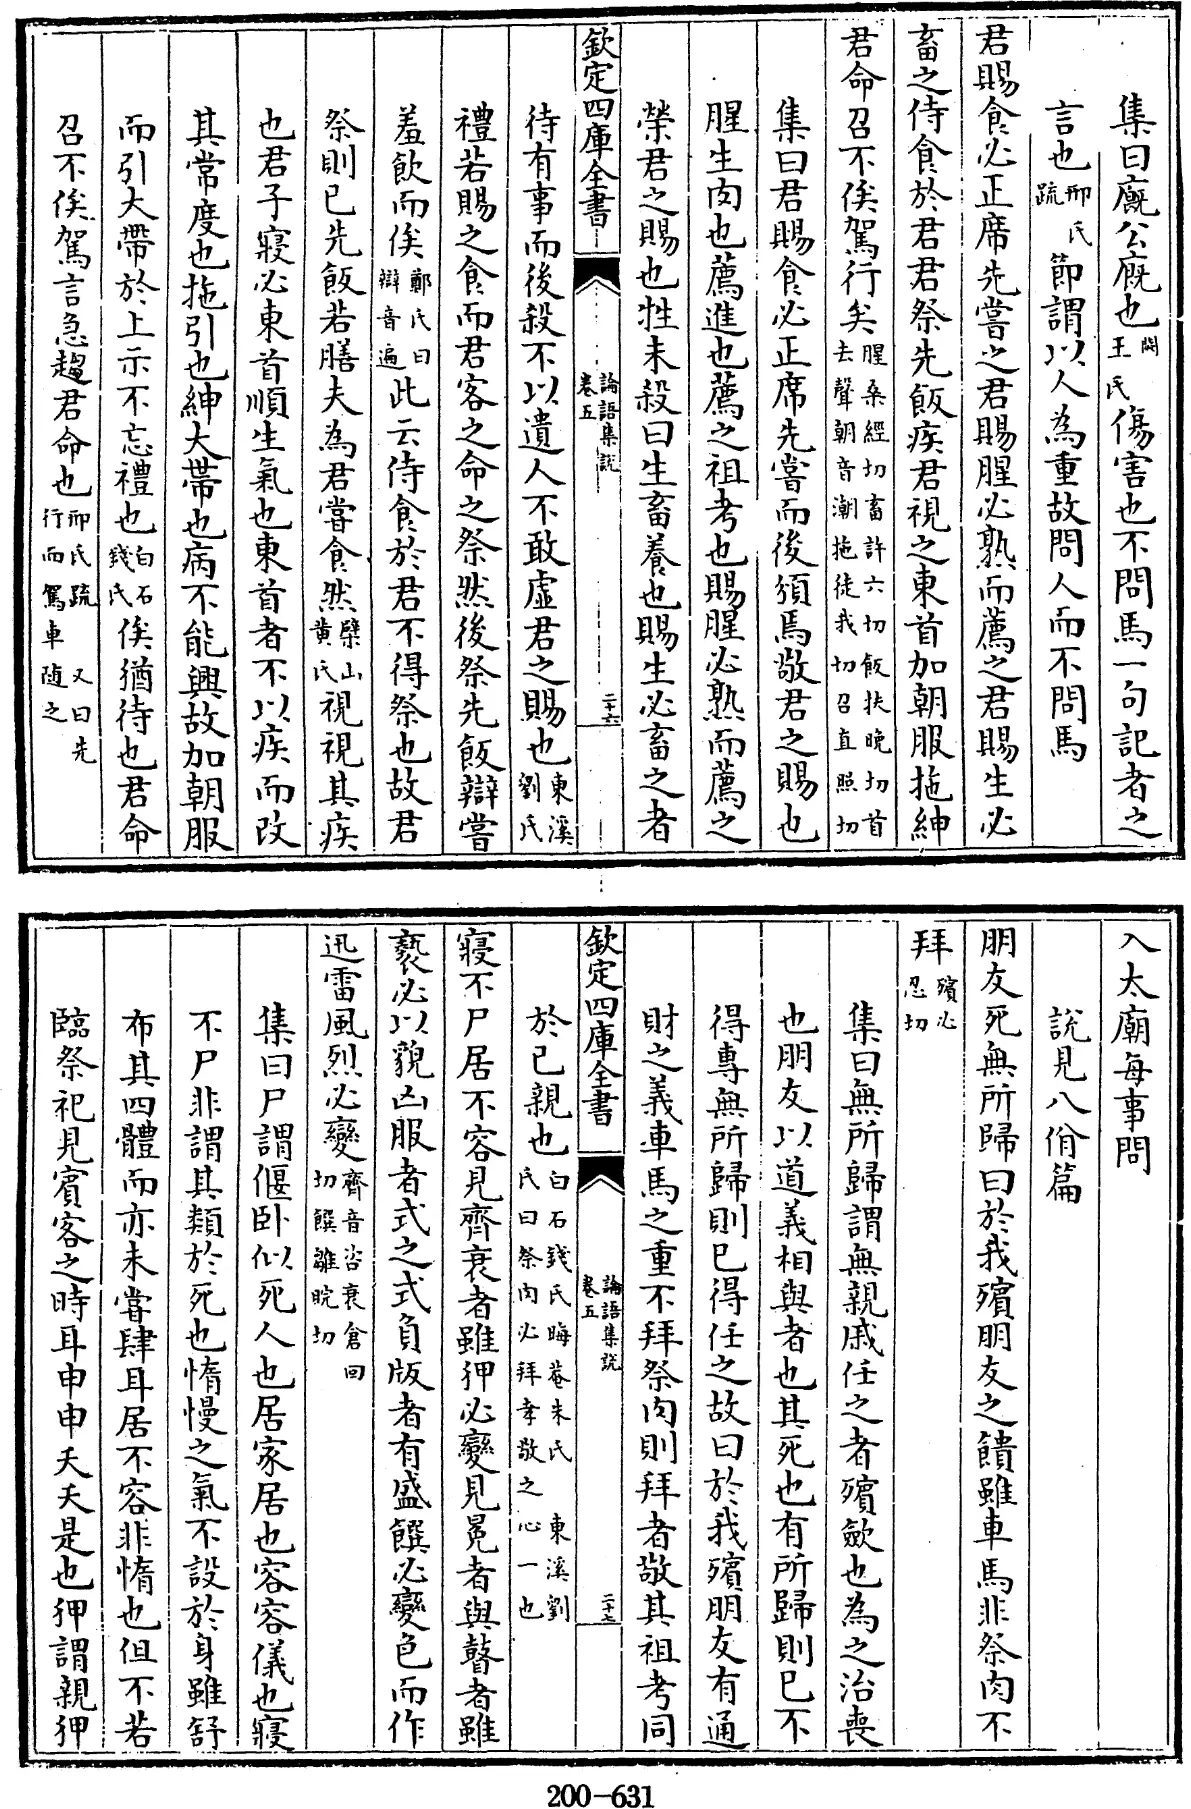 集曰廐公廐也閑王氏傷害也不問馬一句記者之
言也邢氏疏節謂以人為重故問人而不問馬
君賜食必正席先嘗之君賜腥必熟而薦之君賜生必
畜之侍食於君君祭先飯疾君視之東首加朝服拖紳
君命召不俟駕行矣腥桑經切畜許六切飯扶晚切首去聲朝音潮拖徒我切召直照切
集曰君賜食必正席先嘗而後頒焉敬君之賜也
腥生肉也薦進也薦之祖考也賜腥必熟而薦之
榮君之賜也牲未殺曰生畜養也賜生必畜之者
欽定四庫全書
論語集說
卷五
二十六
待有事而後殺不以遺人不敢虛君之賜也東溪劉氏
禮若賜之食而君客之命之祭然後祭先飯辯嘗
羞飲而俟鄭氏曰辯音遍此云侍食於君不得祭也故君
祭則已先飯若膳夫為君嘗食然檗山黃氏視視其疾
也君子寢必東首順生氣也東首者不以疾而改
其常度也拖引也紳大帶也病不能興故加朝服
而引大帶於上示不忘禮也白石錢氏俟猶待也君命
召不俟駕言急趨君命也邢氏疏 又曰先行而駕車随之
入太廟每事問
說見八佾篇
朋友死無所歸曰於我殯朋友之饋雖車馬非祭肉不
拜殯必忍切
集曰無所歸謂無親戚任之者殯斂也為之治喪
也朋友以道義相與者也其死也有所歸則已不
得專無所歸則已得任之故曰於我殯朋友有通
財之義車馬之重不拜祭肉則拜者敬其祖考同
欽定四庫全書
論語集說
卷五
二十七
於已親也白石錢氏晦菴朱氏 東溪劉氏曰祭肉必拜孝敬之心一也
寢不尸居不容見齊衰者雖狎必變見冕者與瞽者雖
褻必以貌凶服者式之式負版者有盛饌必變色而作
迅雷風烈必變齊音咨衰倉回切饌雛晥切
集曰尸謂偃卧似死人也居家居也容容儀也寢
不尸非謂其類於死也惰慢之氣不設於身雖舒
布其四體而亦未嘗肆耳居不容非惰也但不若
臨祭祀見賓客之時耳申申夭夭是也狎謂親狎
200-631